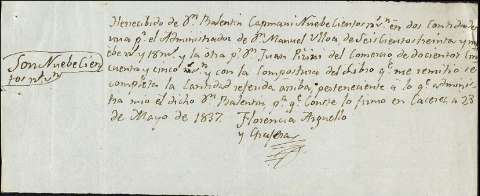 He recibido de Dn Balentin Capmani Nuebe Cientos rs vn en dos Cantidades
una pr el Administrador de Dn Manuel Ulloa de Seis Cientos treinta y nu
ebe rs y 18 ms y la otra pr Dn Juan del Comercio de docientos cin
cuenta y cinco rs vn y con la Compostura del Libro qe me remitio se
completa la Cantidad referida arriba, perteneciente a lo qe adminis
tra mio el dicho Dn Balentin pa qe Conste lo firmo en Caceres a 23
de Mayo de 1837.
Florencia Arguello
y
Son Nuebe Cien
tos rs vn